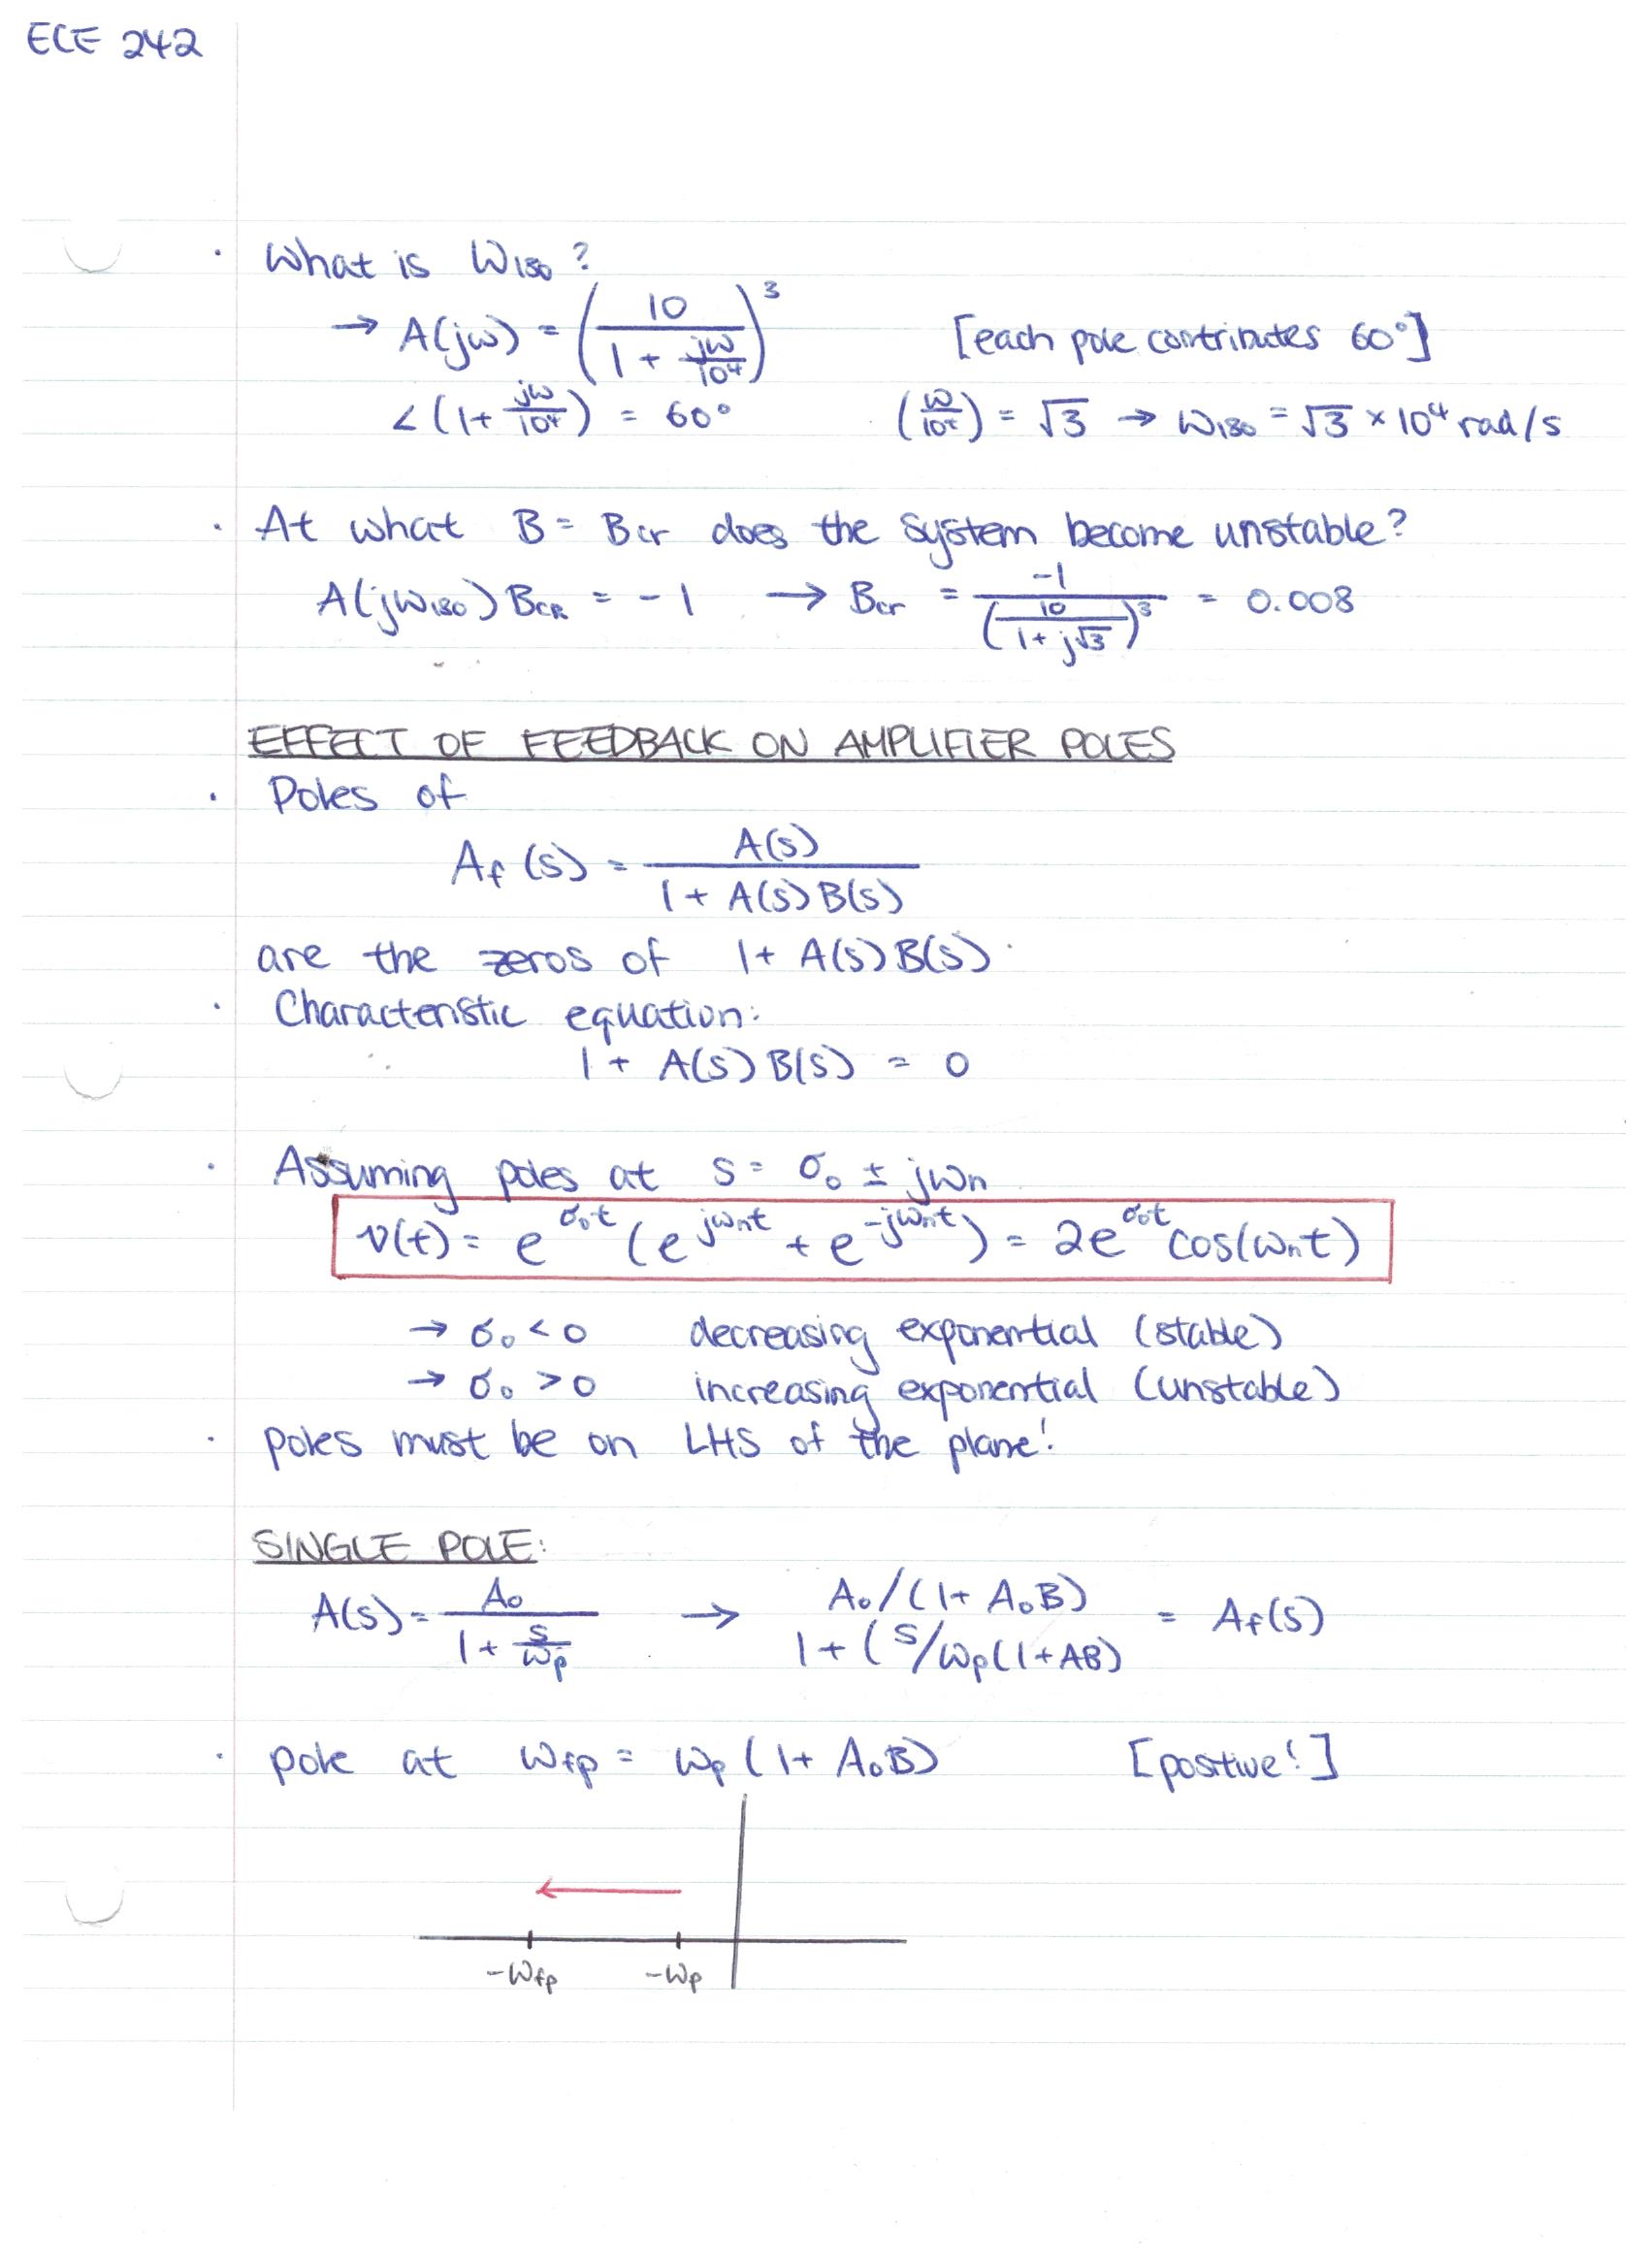 ECE 242
· What is ω₁₈₀?
→ A(jω) = (10 / (1 + jω/10⁴))³ [each pole contributes 60°]
∠(1 + jω/10⁴) = 60° (ω/10⁴) = √3 → ω₁₈₀ = √3 × 10⁴ rad/s
· At what B = Bcr does the system become unstable?
A(jω₁₈₀) BCR = -1 → Bcr = -1 / (10 / (1 + j√3))³ = 0.008
EFFECT OF FEEDBACK ON AMPLIFIER POLES
· Poles of
Af(s) = A(s) / (1 + A(s)B(s))
are the zeros of 1 + A(s)B(s)
· Characteristic equation:
1 + A(s)B(s) = 0
· Assuming poles at s = σ₀ ± jωn
v(t) = e^σ₀t (e^jωnt + e^-jωnt) = 2e^σ₀t cos(ωnt)
→ σ₀ < 0 decreasing exponential (stable)
→ σ₀ > 0 increasing exponential (unstable)
· poles must be on LHS of the plane!
SINGLE POLE:
A(s) = A₀ / (1 + s/ωp) → A₀/(1 + A₀B) / 1 + (s/ωp(1+AB) = Af(s)
· pole at ωfp = ωp(1 + A₀B) [positive!]
-ωfp -ωp